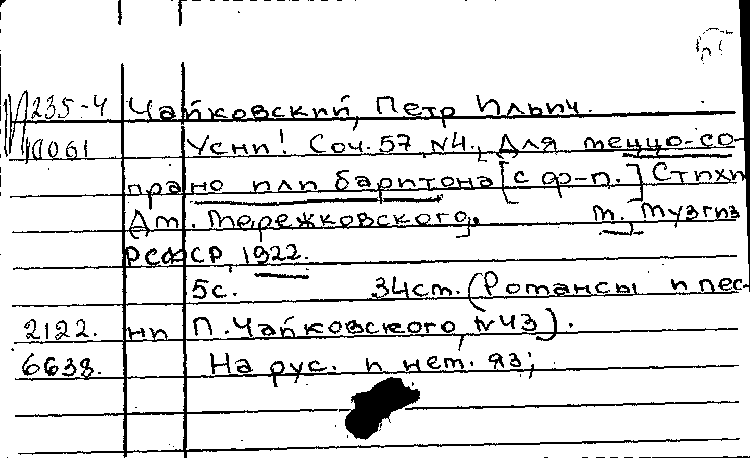 235-4 Чайковский, Петр Ильич.
10061 Усни! Соч. 57, №4. Для меццо-со-
прано или баритона [с ф-п.] Стихи
Дм. Мережковского. М., Музгиз
РСФСР, 1922.
5с. 34см. (Романсы и пес-
2122. ни П. Чайковского, №43).
6638. На рус. и нем. яз;